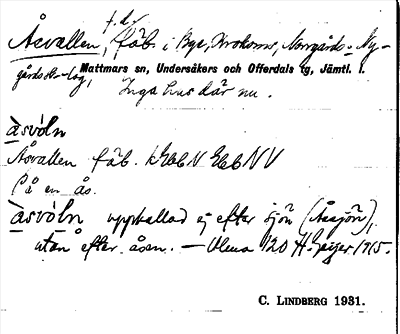 f. d.
Åsvallen, fäb. i Byn, Krokoms, Norrgårds- Ny-
gårds skog,
Mattmars sn, Undersåkers och Offerdals tg, Jämtl. l.
Inga hus där nu.
àsvòln
Åsvallen fäb.
På en ås.
àsvòln uppkallad ej efter sjön (Åssjön),
utan efter åsen. – Ulma 120 H. Geijer 1915.
C. LINDBERG 1931.